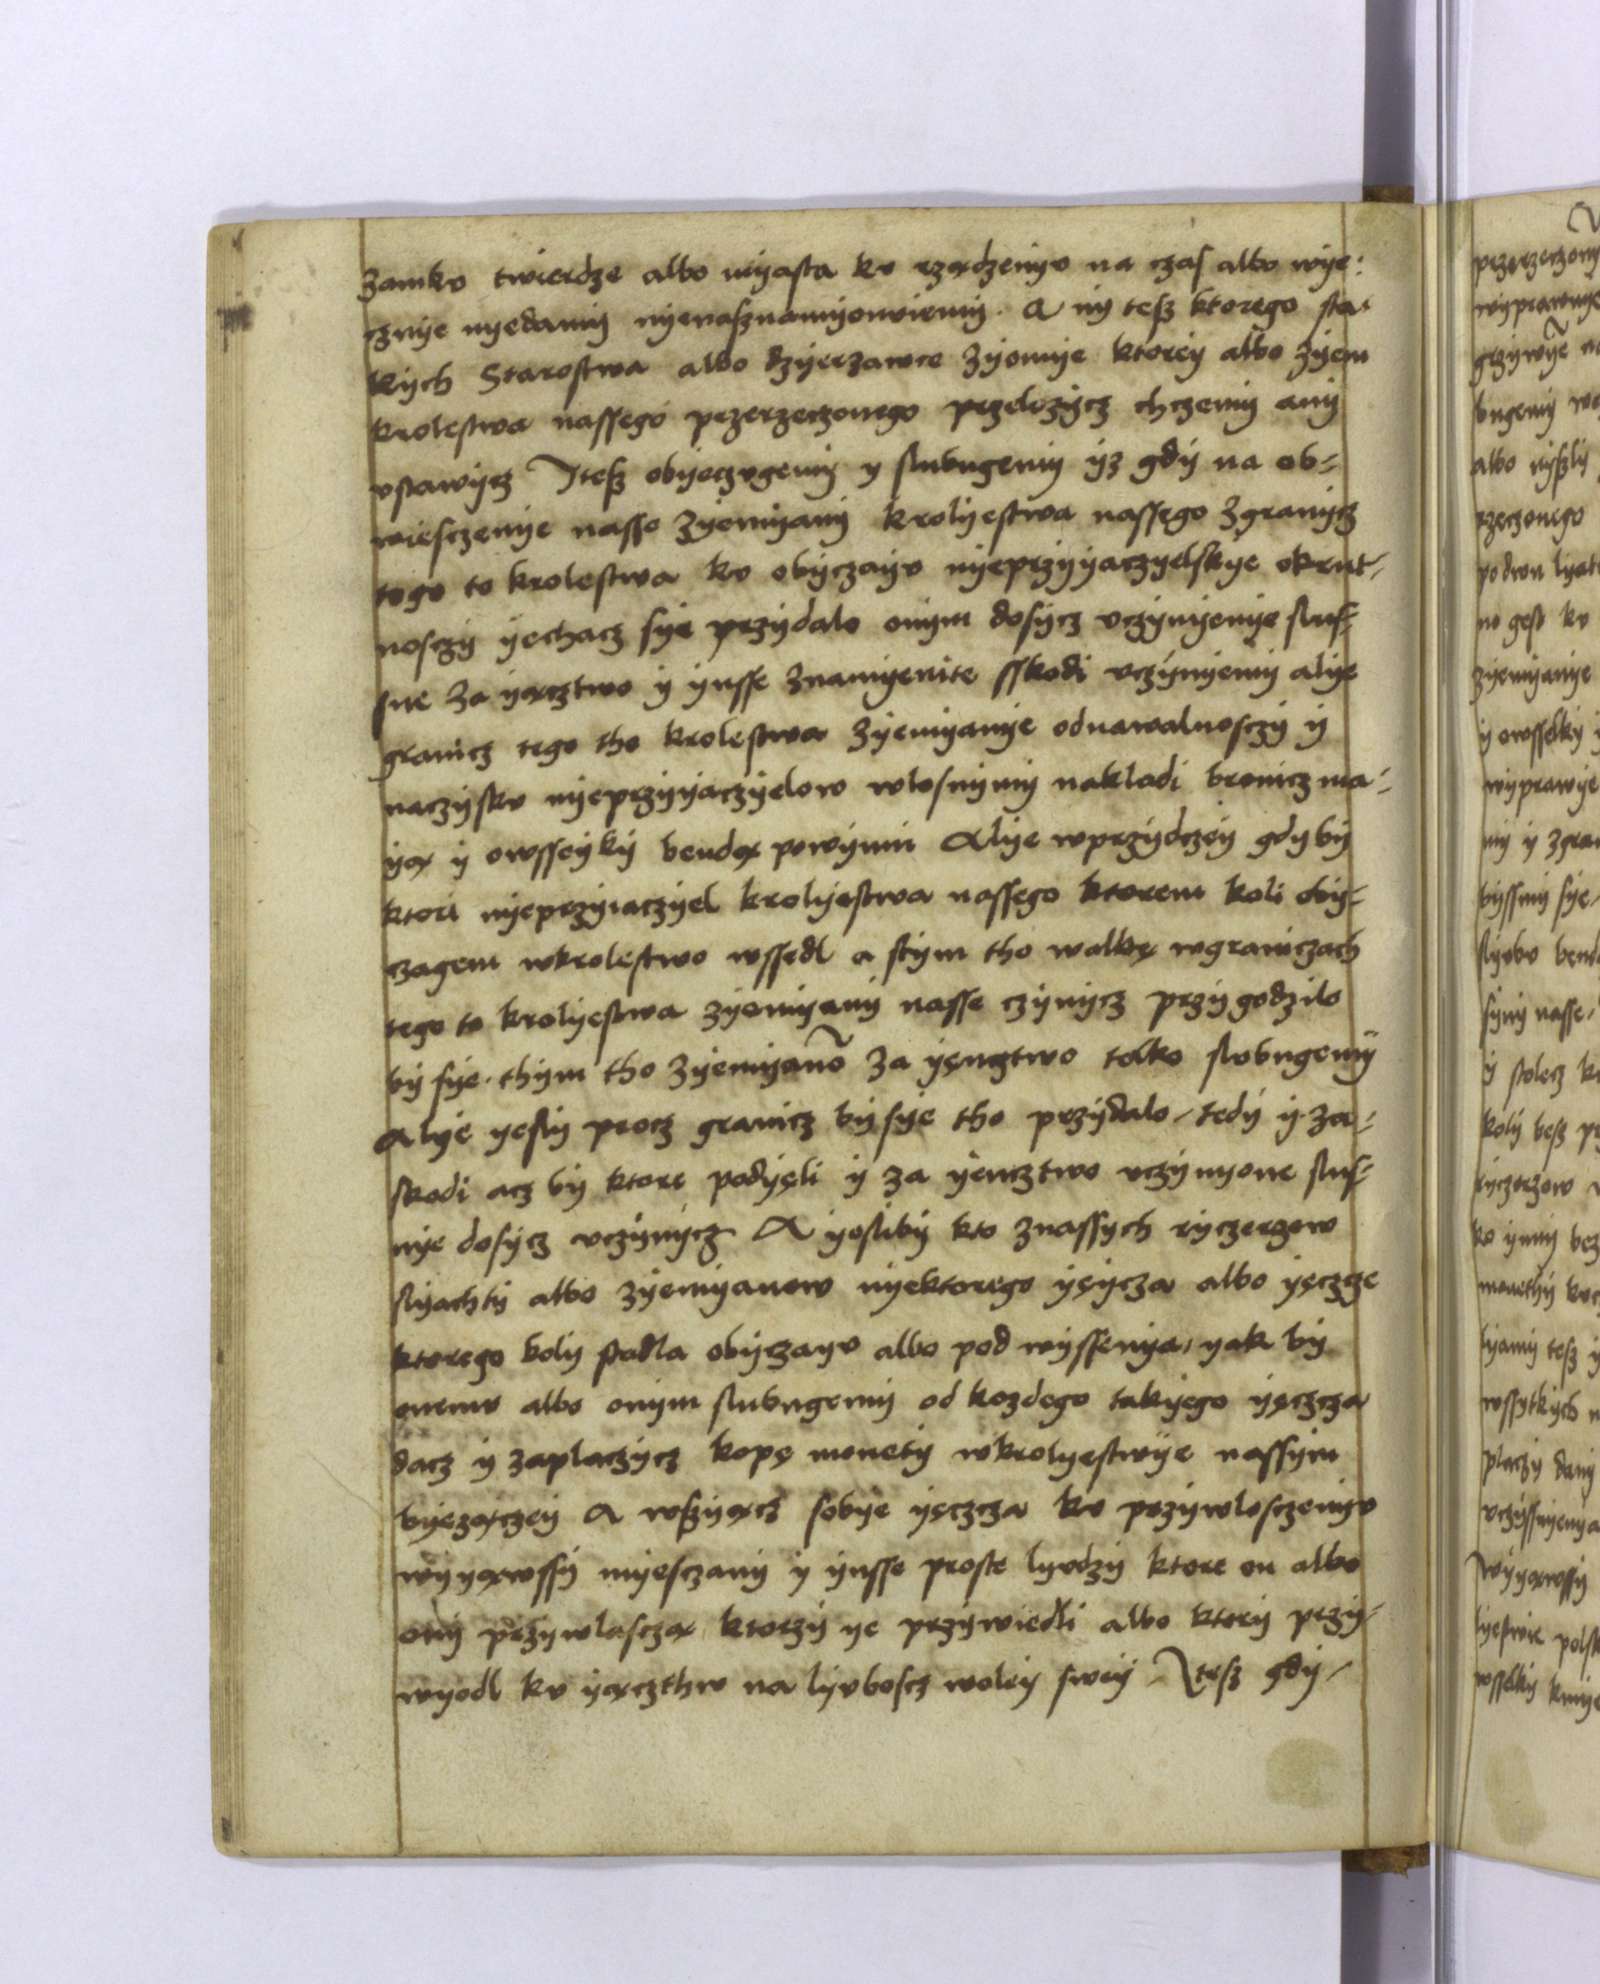 zamkv twierdze albo myasta kv rządzenyv na czas albo wye:
cznye nyedamy nyenasznamyonviemy. A ny tesz ktorego sta-
kych Starostwa albo dzyerzawce zyemye ktorey albo zyem
krolestwa nassego przerzeczonego przelozycz chczemy any
vstawycz Itesz obyeczvgemy y slubugemy yz gdy na ob-
wiesczenye nasse zyemyany krolyestwa nassego zgranycz
tego to krolestwa kv obyczayv nyeprzyyaczyelskye okrut-
nosczy yechacz sye przydalo onym dosycz vczynyenye slus-
sne za yączstwo y ynsse znamyenite sskodi vczynyemy alye
granicz tego tho krolestwa zyemyanye odnawalnosczy y
naczyskv nyeprzyyaczyelow wlosnymy nakladi bronicz ma-
yą y owsseyky bendą powynni Alye wprzydczey gdyby
ktori nyeprzyiaczyel krolyestwa nassego ktorem koli oby-
czagem wkrolestwo wssedl a stym tho walkę wgraniczach
tego to krolyestwa zyemyany nasse czynycz przygodzilo
by sye. thym tho zyemyanō za yęnztwo tolko slvbugemy
Alye yesly procz granicz by sye tho przydalo, tedy y za-
skodi acz by ktore podyęli y za yencztwo vczynyone slus-
nye dosycz vczynycz A yesliby kto znassych ryczerzow
slyachty albo zyemyanow nyektorego yęycza albo yęczcze
ktorego koly stadla obyczayv albo pod wyssenya, yak by
onemv albo onym slubugemy od kozdego takyego yęczcza
dacz y zaplaczycz kopę monety wkrolyestwye nassym
byezączey A wszyącz sobye yęczcza kv przywlosczenyv
wyyąwssy myesczany y ynsse proste lyvdzy ktore on albo
ony przywlasczą ktorzy ye przywiedli albo ktory przy-
wyodl kv yączthw na lyvbosc woley swey. Itesz gdy-